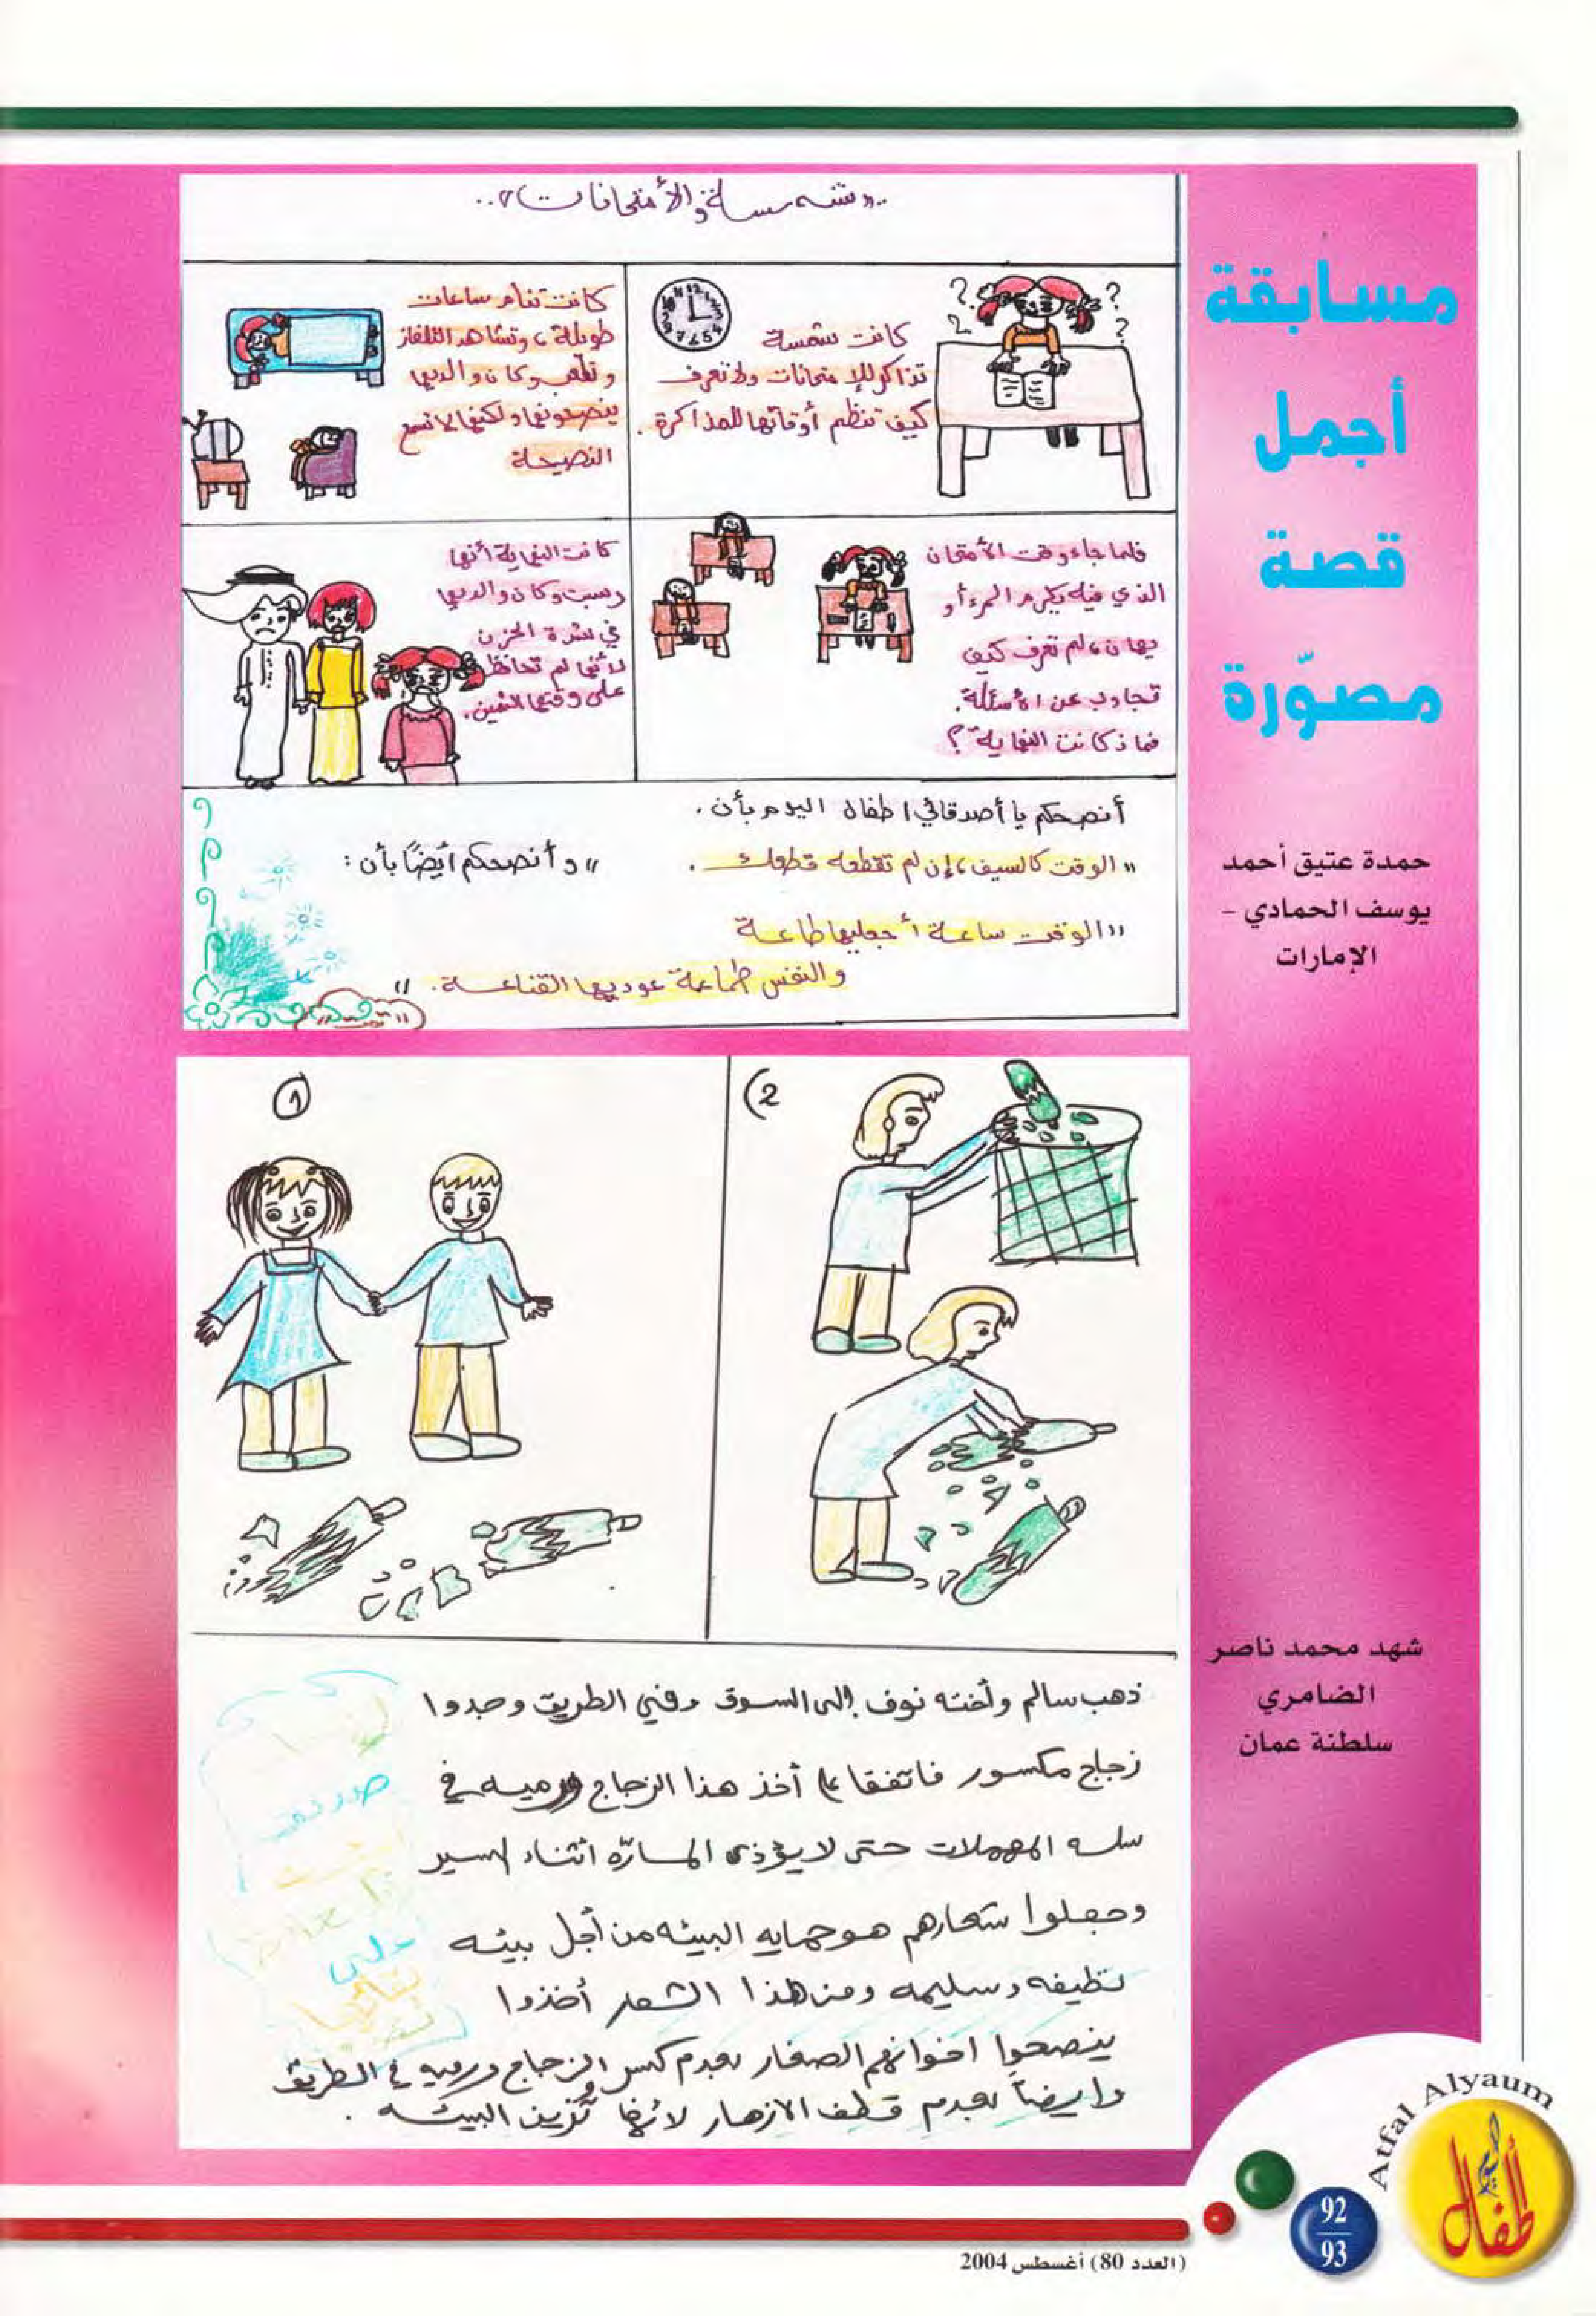 مسابقة
أجمل
قصة
مصوّرة
"شمسة والأمتحانات"..
كانت شمسة
تذاكر للإمتحانات ولا تعرف
كيف تنظم أوقاتها للمذاكرة.
كانت تنام ساعات
طويلة، وتشاهد التلفاز
وتلعب وكان والديها
ينصحونها ولكنها لا تسمع
النصيحة
فلما جاء وقت الأمتحان
الذي فيه يكرم المرء أو
يهان، لم تعرف كيف
تجاوب عن الأسئلة.
فماذ كانت النهاية؟
كانت النهاية أنها
رسبت وكان والديها
في شدة الحزن
لأنها لم تحافظ
على وقتها الثمين.
أنصحكم يا أصدقائي اطفال اليوم بأن.
"الوقت كالسيف، إن لم تقطعه قطعك.
" وأنصحكم أيضًا بأن:
"الوقت ساعة أجعليها طاعة
والنفس طماعة عوديها القناعة."
"تمت"
حمدة عتيق أحمد
يوسف الحمادي -
الإمارات
1
2)
ذهب سالم وأخته نوف إلى السوق وفي الطريق وجدوا
زجاج مكسور فاتفقا على أخذ هذا الزجاج ورميه في
سله المهملات حتى لا يؤذي المارّه اثناء السير
وجعلوا شعارهم هو حمايه البيئه من أجل بيئه
نظيفه وسليمه ومن هذا الشعار أخذوا
ينصحوا اخوانهم الصغار بعدم كسر الزجاج ورميه في الطريق
وايضاً بعدم قطف الازهار لأنها تُزين البيئه.
شهد محمد ناصر
الضامري
سلطنة عمان
Atfal Alyaum
أطفال اليوم
92
93
(العدد 80) أغسطس 2004